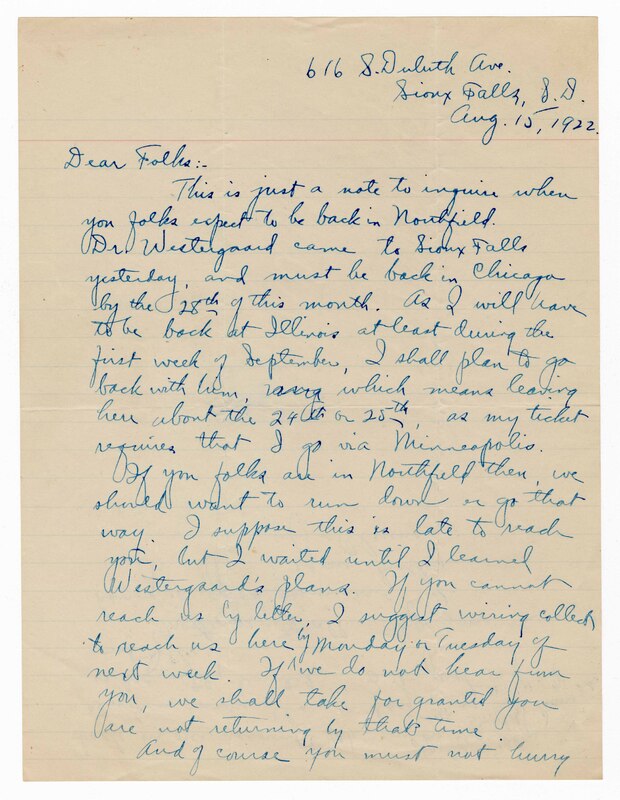 616 S. Duluth Ave.
Sioux Falls, S.D.
Aug. 15, 1922.
Dear Folks:-
This is just a note to inquire when
you folks expect to be back in Northfield.
Dr. Westergaard came to Sioux Falls
yesterday, and must be back in Chicago
by the 28th of this month. As I will have
to be back at Illinois at least during the
first week of September, I shall plan to go
back with him, which means leaving
here about the 24th or 25th, as my ticket
requires that I go via Minneapolis.
If you folks are in Northfield then, we
should want to run down or go that
way. I suppose this is late to reach
you, but I waited until I learned
Westergaard's plans. If you cannot
reach us by letter, I suggest wiring collect
to reach us here by Monday or Tuesday of
next week. If we do not hear from
you, we shall take for granted you
are not returning by that time.
And of course you must not hurry